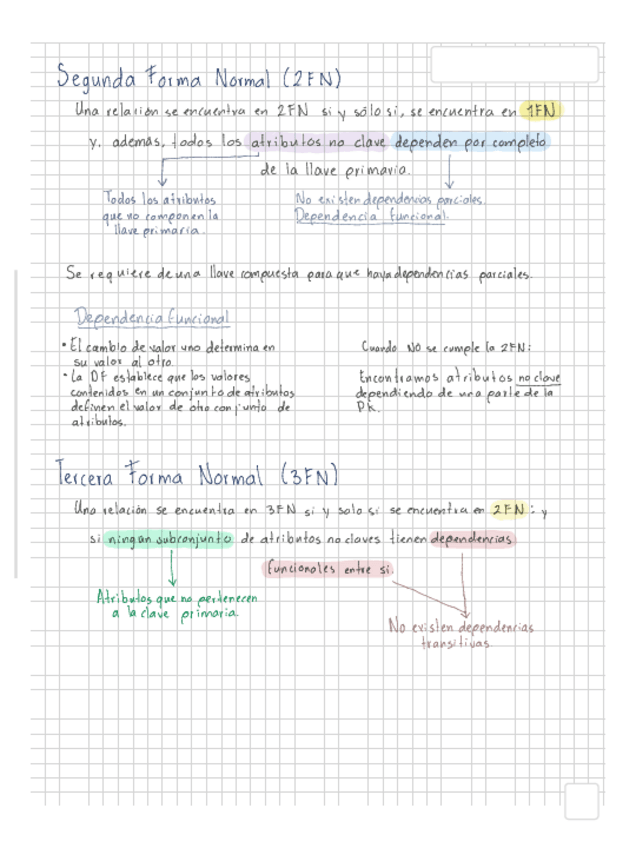 Segunda Forma Normal (2FN)
Una relación se encuentra en 2FN si y sólo si, se encuentra en 1FN
y, además, todos los atributos no clave dependen por completo
de la llave primaria.
Todos los atributos
que no componen la
llave primaria.
No existen dependencias parciales.
Dependencia funcional.
Se requiere de una llave compuesta para que haya dependencias parciales.
Dependencia funcional
• El cambio de valor uno determina en
su valor al otro.
• La DF establece que los valores
contenidos en un conjunto de atributos
definen el valor de otro conjunto de
atributos.
Cuando NO se cumple la 2FN:
Encontramos atributos no clave
dependiendo de una parte de la
PK.
Tercera Forma Normal (3FN)
Una relación se encuentra en 3FN si y solo si se encuentra en 2FN: y
si ningún subconjunto de atributos no claves tienen dependencias
funcionales entre si.
Atributos que no pertenecen
a la clave primaria.
No existen dependencias
transitivas.